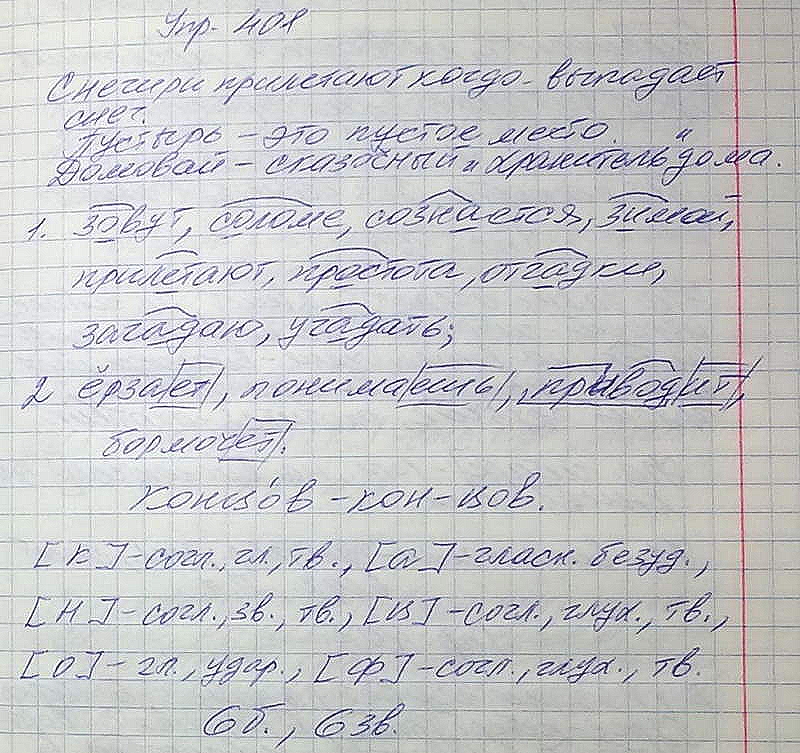 Упр. 401
Снегири прилетают когда - выпадает
снег.
Пустырь - это пустое место.
Домовой - сказочный "хранитель" дома.
1. зовут, соломе, сознается, зимой,
прилетают, простота, отгадки,
загадаю, угадать;
2 ёрзает, понимаешь, приводит,
бормочет.
Концов - кон-цов.
[к] - согл., гл., тв., [а] - гласн. безуд.,
[н] - согл., зв., тв., [ц] - согл., глух., тв.,
[о] - гл., удар., [ф] - согл., глух., тв.
6б., 6зв.